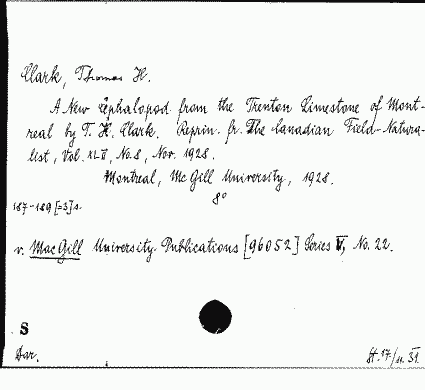 Clark, Thomas H.
A New Cephalopod from the Trenton Limestone of Mont-
real by T. H. Clark. Reprin. fr. The Canadian Field-Natura-
list, Vol. XLII, No. 8, Nov. 1928.
Montreal, Mc Gill University, 1928.
8°
187-189 [=3] s.
v. Mac Gill University Publications [96052] Series V, No. 22.
S
Dar.
St. 17/11. 31.